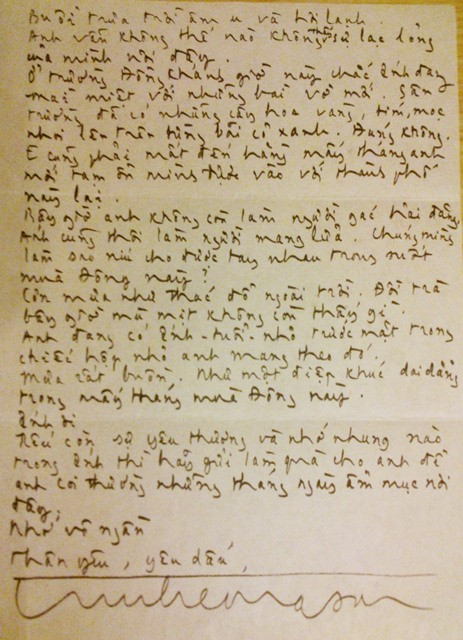 Buổi trưa trời âm u và hơi lạnh.
Anh vẫn không thể nào không thấy sự lạc lõng
của mình nơi đây.
Ở trường Đồng Khánh giờ này chắc Ánh đang
mải miết với những bài vở mới. Sân
trường đã có những cây hoa vàng, tím, mọc
nhoi lên trên từng bãi cỏ xanh. Đúng không.
E cũng phải mất đến hàng mấy tháng anh
mới tạm ổn mình được vào với thành phố
này lại.
Bây giờ anh không còn làm người gác hải đăng.
Anh cũng thôi làm người mang lửa. Chúng mình
làm sao níu cho được tay nhau trong suốt
mùa Đông này?
Cơn mưa như thác đổ ngoài trời. Đồi trà
bây giờ mù mịt không còn thấy gì.
Anh đang có Ánh-tuổi-nhỏ trước mặt trong
chiếc hộp nhỏ anh mang theo đó.
Mưa rất buồn. Như một điệp khúc dai dẳng
trong mấy tháng mùa Đông này.
Ánh ơi
Nếu còn sự yêu thương và nhớ nhung nào
trong Ánh thì hãy gửi làm quà cho anh để
anh coi thường những tháng ngày ẩm mục nơi
đây.
Nhớ vô ngần
Thân yêu, yêu dấu,
trinhcongson